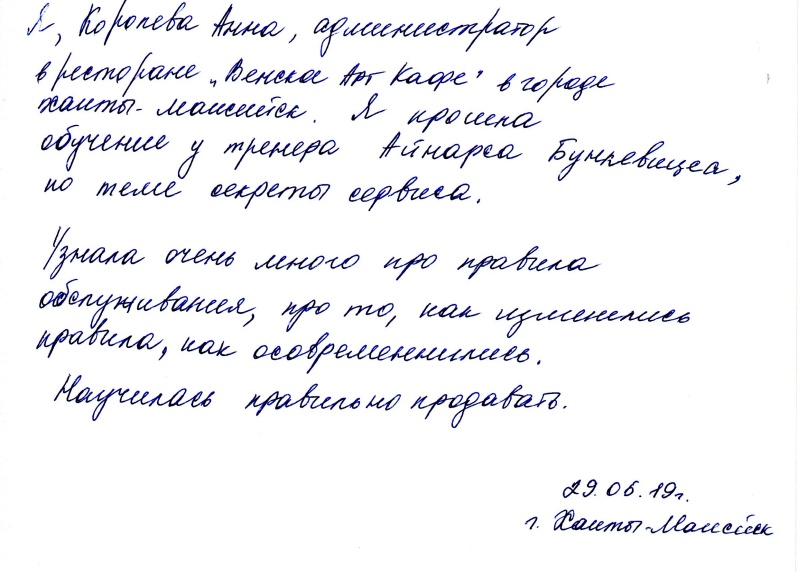 Я, Королева Анна, администратор
в ресторане „Венское Арт Кафе" в городе
Ханты-Мансийск. Я прошла
обучение у тренера Айнарса Бункевицса,
по теме секреты сервиса.
Узнала очень много про правила
обслуживания, про то, как изменились
правила, как осовременнились.
Научилась правильно продавать.
29.06.19г.
г. Ханты-Мансийск